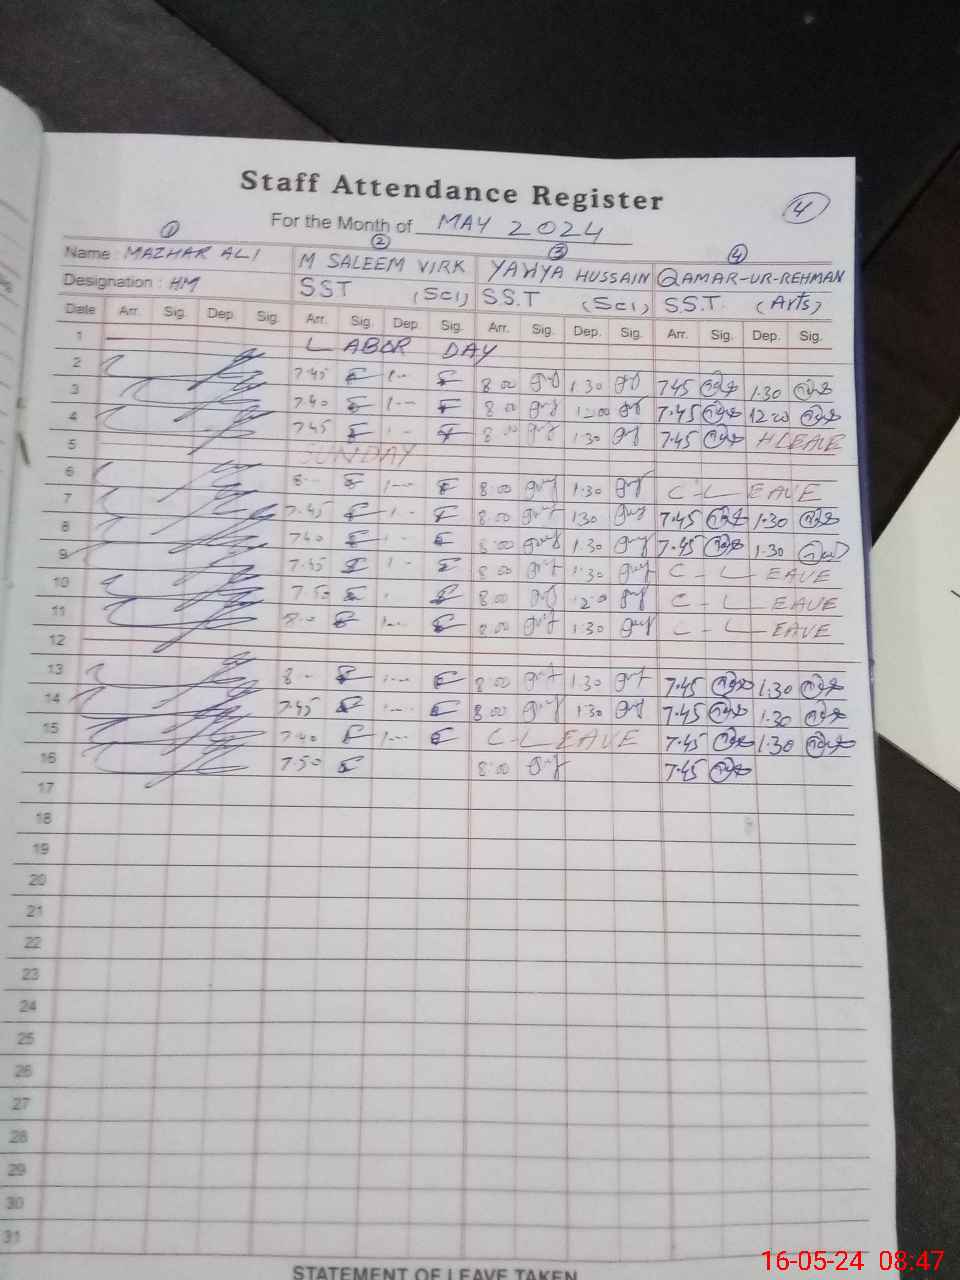 Staff Attendance Register
4
For the Month of MAY 2024
1 2 3 4
Name : MAZHAR ALI M SALEEM VIRK YAHYA HUSSAIN QAMAR-UR-REHMAN
Designation : HM SST (Sci) S.S.T (Sci) S.S.T. (Arts)
Date Arr. Sig. Dep. Sig. Arr. Sig. Dep. Sig. Arr. Sig. Dep. Sig. Arr. Sig. Dep. Sig.
1 LABOR DAY
2 7.45 1-- 8.00 1.30 7.45 1.30
3 7.40 1-- 8.00 7.45
4 7.45 8.00 1.30 7.45 H LEAVE
5 SUNDAY
6 8-- 1-- 8.00 1.30 C-LEAVE
7 7.45 1-- 8.00 1.30 7.45 1.30
8 7.40 8.00 1.30 7.45 1.30
9 7.45 8.00 1.30 C-LEAVE
10 7.50 8.00 C-LEAVE
11 1-- 8.00 1.30 C-LEAVE
12
13 8-- 1-- 8.00 1.30 7.45 1.30
14 7.45 1-- 8.00 1.30 7.45 1.30
15 7.40 1-- C-LEAVE 7.45 1.30
16 7.50 8.00 7.45
17
18
19
20
21
22
23
24
25
26
27
28
29
30
31
STATEMENT OF LEAVE TAKEN
16-05-24 08:47